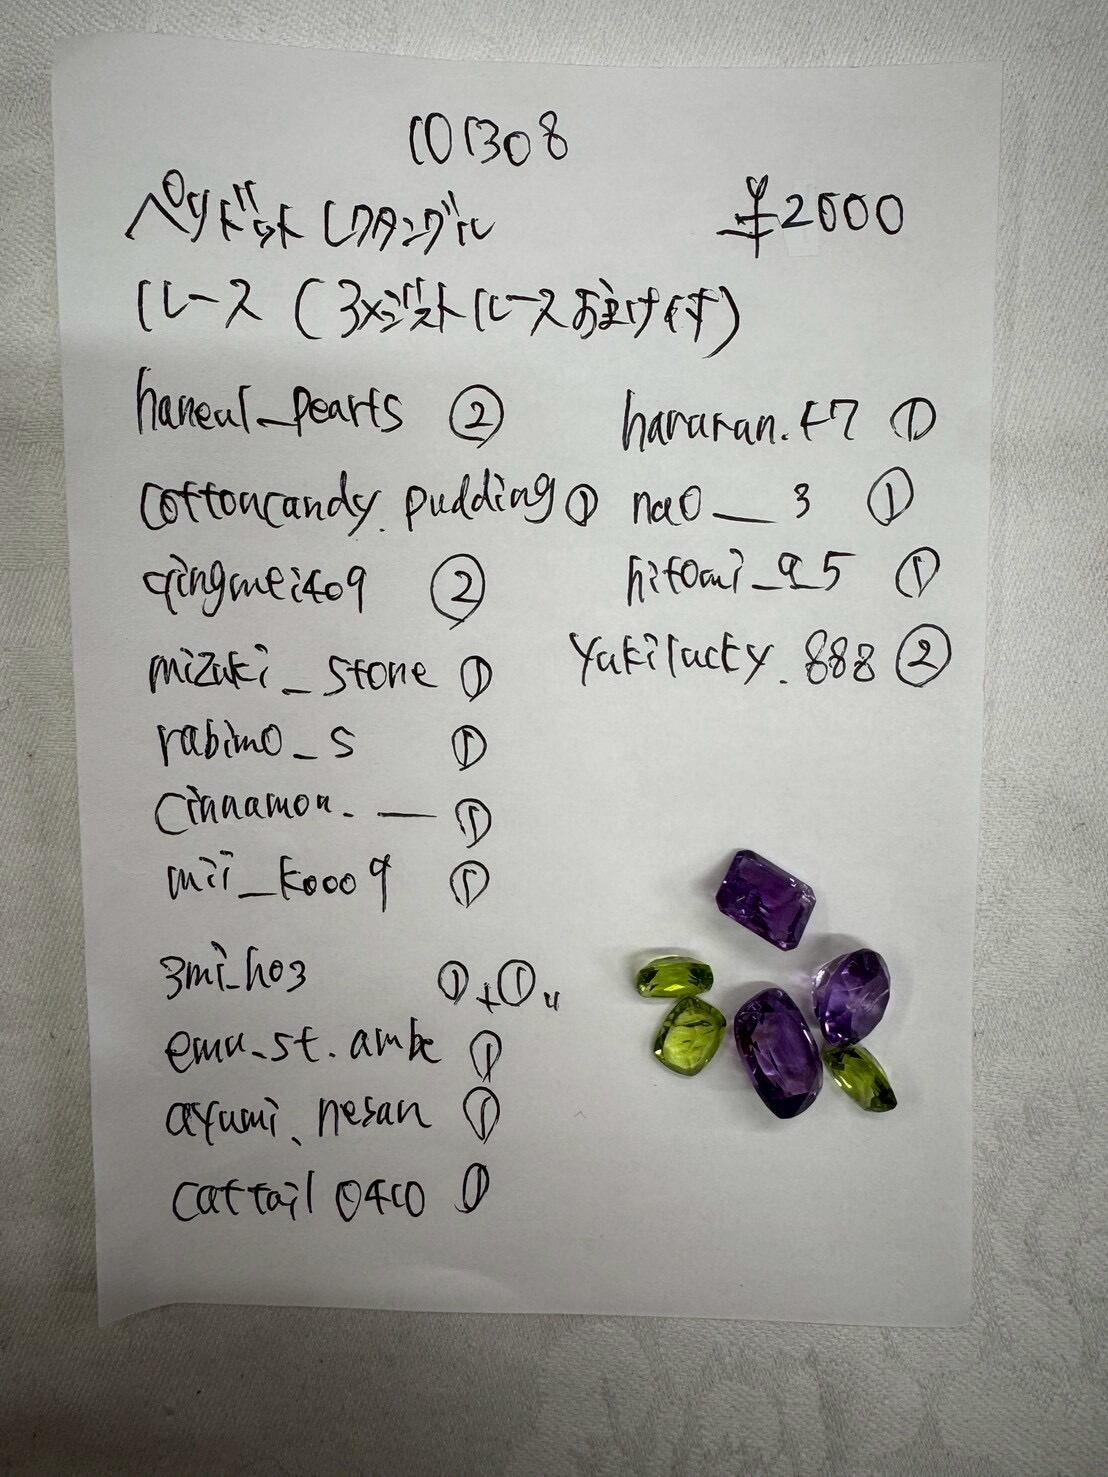 101308
ペリドットレクタングル ¥2000
ルース (3×ジストルースおまけ付)
haneul_pearls ②
cottoncandy.pudding ①
qingmei409 ②
mizuki_stone ①
rabimo_s ①
cinnamon.__ ①
mii_k0009 ①
3mi_ho3 ①+①"
emu_st.ambe ①
ayumi.nesan ①
cattail0410 ①
hararan.t7 ①
nao__3 ①
hitomi_9_5 ①
yukilucky.888 ②